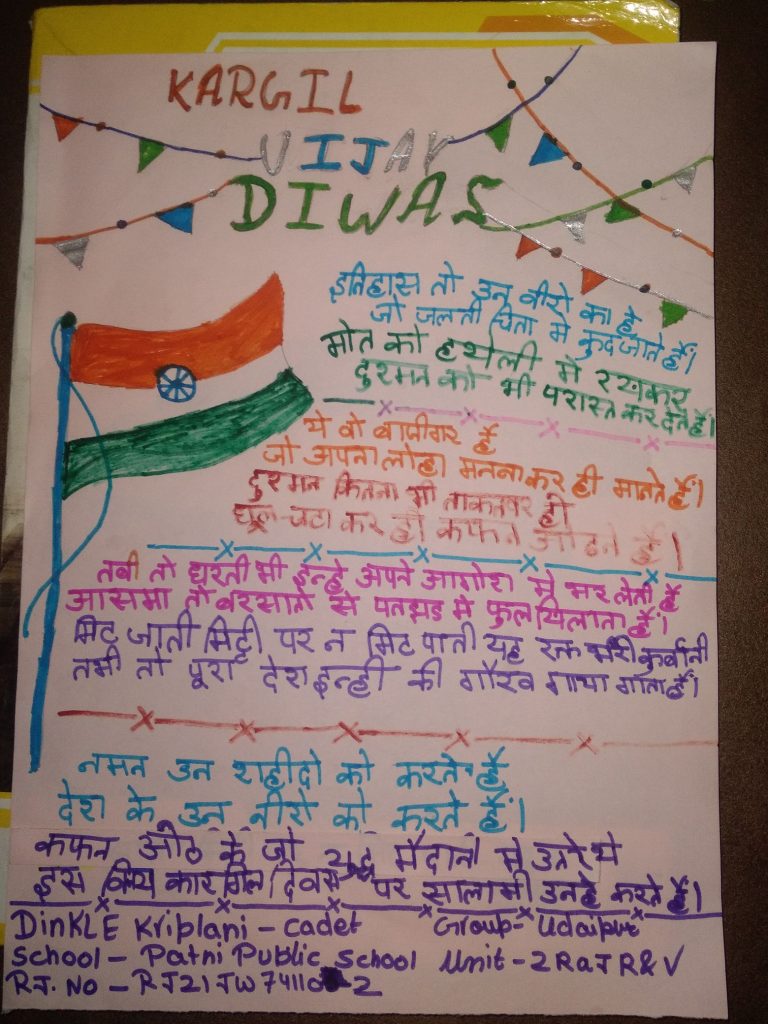 KARGIL
VIJAY
DIWAS
इतिहास तो उन वीरो का है
जो जलती चिता मे कुद जाते हैं।
मोत को हथेली मे रखकर
दुश्मन को भी परास्त कर देते हैं।
ये वो बाजीगर हैं
जो अपना लोहा मनना कर ही मानते हैं।
दुश्मन कितना भी ताकतवर हो
धूल-चटा कर ही कफन ओढते है।
तवी तो धरती भी इन्हे अपने आगोश मे भर लेती है
आसमा तो वरसागे से पतझड मे फुल खिलाता हैं।
मिट जाती मिट्टी पर न मिट पाती यह रक्त भरी कुर्वानी
तभी तो पूरा देश इन्ही की गौरव गाथा गाता हैं।
नमन उन शहीदो को करते हैं
देश के उन वीरो को करते हैं।
कफन ओठ के जो युद्ध मैदानो मे उतरे थे
इस विजय कारगिल दिवस पर सलामी उनहे करते हैं।
DinKLE Kriplani - cadet Group - Udaipur
School - Patni Public School Unit - 2 Raj R&V
RJ. No - RJ21JW7411 2